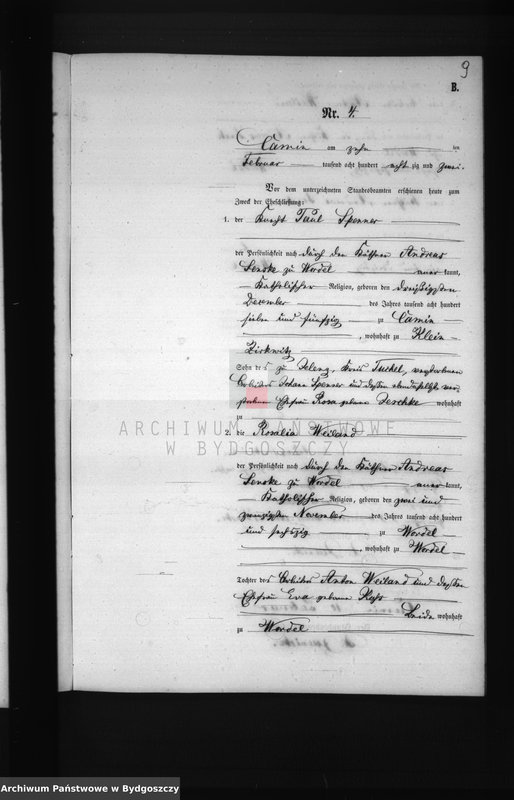 9
B.
Nr. 4.
Camin am zehn ten
Februar tausend acht hundert acht zig und zwei.
Vor dem unterzeichneten Standesbeamten erschienen heute zum
Zweck der Eheschließung:
1. der Knecht Paul Spenner
der Persönlichkeit nach durch den Käthner Andreas
Senske zu Wordel aner kannt,
Katholischer Religion, geboren den dreißigsten
Dezember des Jahres tausend acht hundert
sieben und fünfzig zu Camin
, wohnhaft zu Klein
Zirkwitz
Sohn des zu Zeleng, Kreis Tuchel, verstorbenen
Arbeiters Johann Spenner und dessen ebendaselbst ver-
storbenen Ehefrau Rosa geborne Jeschke wohnhaft
zu
2. die Rosalia Weiland
der Persönlichkeit nach durch den Käthner Andreas
Senske zu Wordel aner kannt,
Katholischer Religion, geboren den zwei und
zwanzigsten November des Jahres tausend acht hundert
und sechszig zu Wordel
, wohnhaft zu Wordel
Tochter des Arbeiters Anton Weiland und dessen
Ehefrau Eva geborne
Beide wohnhaft
zu Wordel
ARCHIWUM PAŃSTWOWE
W BYDGOSZCZY
Archiwum Państwowe w Bydgoszczy